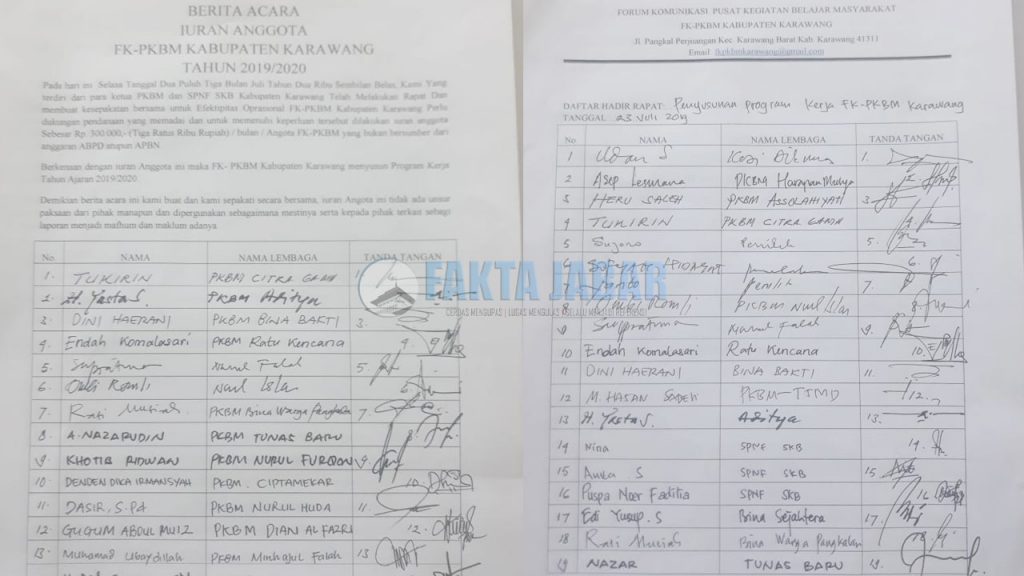 BERITA ACARA
IURAN ANGGOTA
FK-PKBM KABUPATEN KARAWANG
TAHUN 2019/2020
Pada hari ini Selasa Tanggal Dua Puluh Tiga Bulan Juli Tahun Dua Ribu Sembilan Belas, Kami Yang
terdiri dari para ketua PKBM dan SPNF SKB Kabupaten Karawang Telah Melakukan Rapat Dan
membuat kesepakatan bersama untuk Efektipitas Oprasional FK-PKBM Kabupaten Karawang Perlu
dukungan pendanaan yang memadai dan untuk memenuhi keperluan tersebut dilakukan iuran anggota
Sebesar Rp 300.000,- (Tiga Ratus Ribu Rupiah) / bulan / Angota FK-PKBM yang bukan bersumber dari
anggaran ABPD atupun APBN.
Berkenaan dengan iuran Anggota ini maka FK- PKBM Kabupaten Karawang menyusun Program Kerja
Tahun Ajaran 2019/2020.
Demikian berita acara ini kami buat dan kami sepakati secara bersama, iuran Angota ini tidak ada unsur
paksaan dari pihak manapun dan dipergunakan sebagaimana mestinya serta kepada pihak terkait sebagi
laporan menjadi mafhum dan maklum adanya
No. NAMA NAMA LEMBAGA TANDA TANGAN
1. TUKIRIN PKBM CITRA GAMA 1
2. H. Yasta S. PKBM Aditya
3. DINI HAERANI PKBM BINA BAKTI 3.
4. Endah Komalasari PKBM Ratu Kencana 4.
5. Supratma Nurul Falah 5.
6. Romli Nurul Isla 6
7. Rati Mutiah PKBM Bina Warga Pangkalan 7.
8. A. NAZARUDIN PKBM TUNAS BARU 8.
9. KHOTIB RIDWAN PKBM NURUL FURQON 9
10 DENDEN DIKA IRMANSYAH PKBM. CIPTAMEKAR 10.
11. DASIR, S.Pd PKBM NURUL HUDA 11.
12. GUGUM ABDUL MUIZ PKBM DIAN AL FAZRI 12.
13. Muhamad Ubaydilah PKBM Minhajul Falah 13
FORUM KOMUNIKASI PUSAT KEGIATAN BELAJAR MASYARAKAT
FK-PKBM KABUPATEN KARAWANG
Jl. Pangkal Perjuangan Kec. Karawang Barat Kab. Karawang 41311
Email: fkpkbmkarawang@gmail.com
DAFTAR HADIR RAPAT: Penyusunan Program Kerja FK-PKBM Karawang
TANGGAL 23 Juli 2019
No NAMA NAMA LEMBAGA TANDA TANGAN
1 S 1.
2 Asep Lesmana PKBM Harapan Mulya 2.
3 HERU SALEH PKBM ASSOLAHIYATI 3
4 TUKIRIN PKBM CITRA GAMA 4
5 Sugono Penilik 5.
6 6
7 Penilik 7.
8 Romli PKBM Nurul Islam 8
9 Supratma Nurul Falah 9.
10 Endah Komalasari Ratu Kencana 10.
11 DINI HAERANI BINA BAKTI 11.
12 M. HASAN SADELI PKBM- 12.
13 H. Yasta S. Aditya 13.
14 Nina SPNF SKB 14.
15 S SPNF SKB 15
16 Puspa Noer Faditia SPNF SKB 16
17 Edi Yusup. S Bina Sejahtera 17.
18 Rati Mutiah Bina Warga Pangkalan 18
19 NAZAR TUNAS BARU 19.
FAKTA JABAR